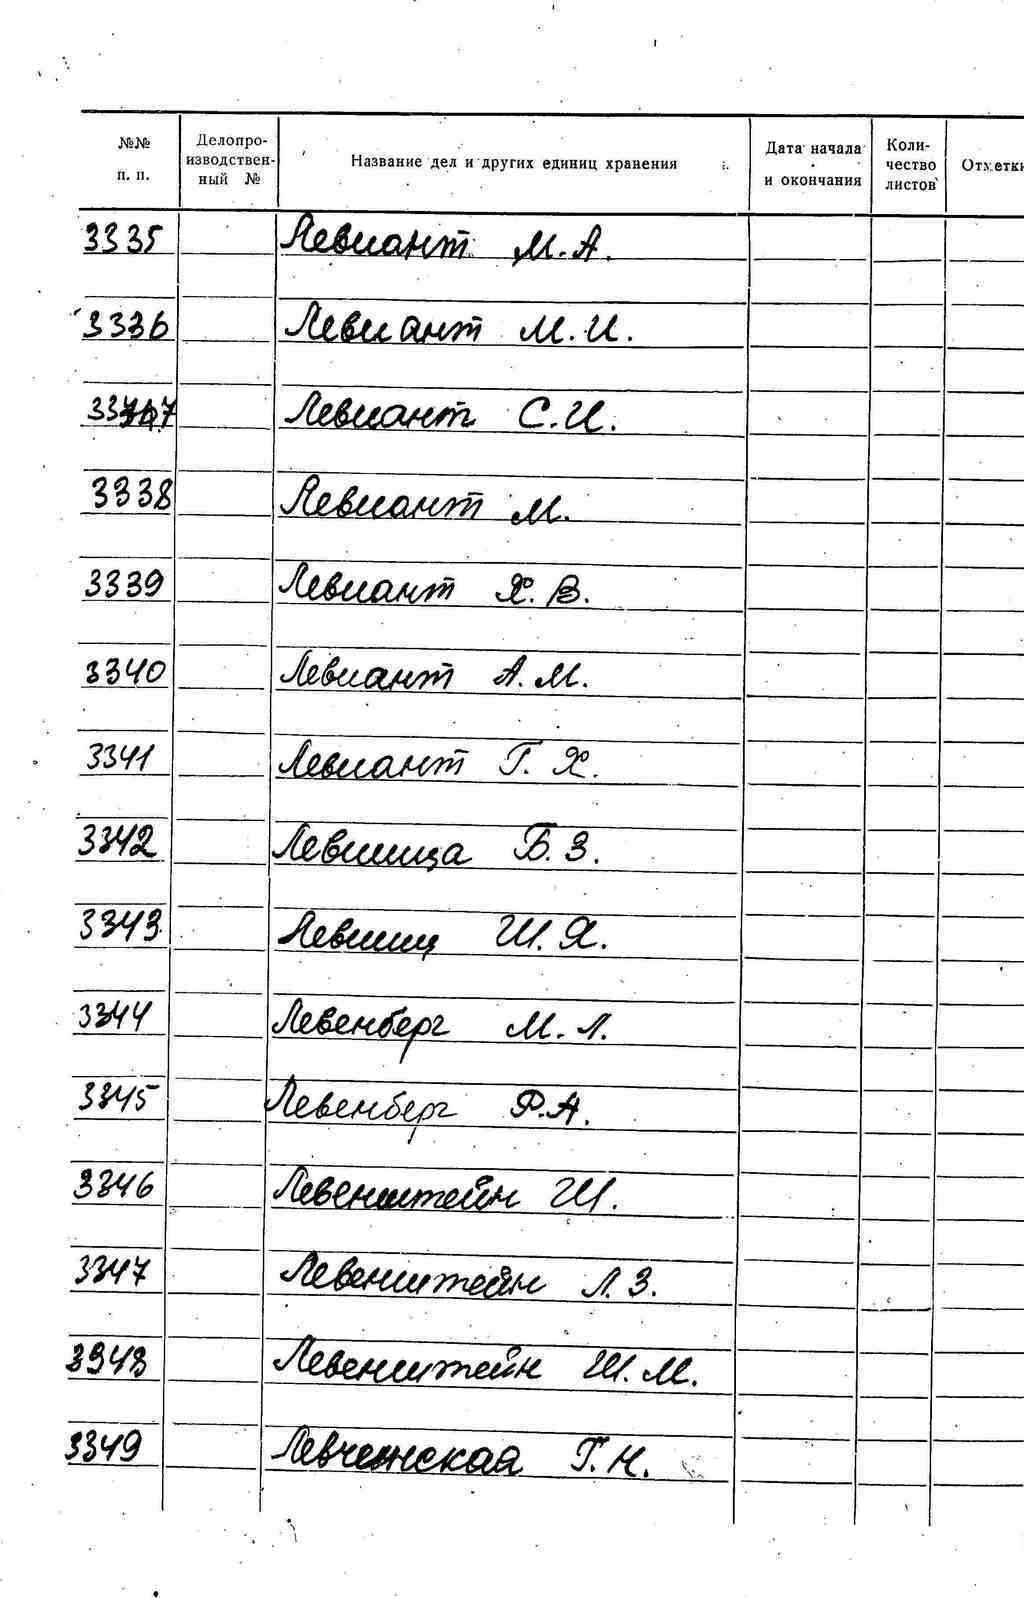 №№ п. п. Делопроизводственный № Название дел и других единиц хранения Дата начала и окончания Количество листов Отметки
3335 Левиант М.А.
3336 Левиант М.И.
3337 Левиант С.И.
3338 Левиант М.
3339 Левиант Х.В.
3340 Левиант А.М.
3341 Левиант Г.Х.
3342 Левшица Б.З.
3343 Левшиц Ш.Я.
3344 Левенберг М.Л.
3345 Левенберг Р.А.
3346 Левенштейн Ш.
3347 Левенштейн Л.З.
3348 Левенштейн Ш.М.
3349 Левченская Г.Н.